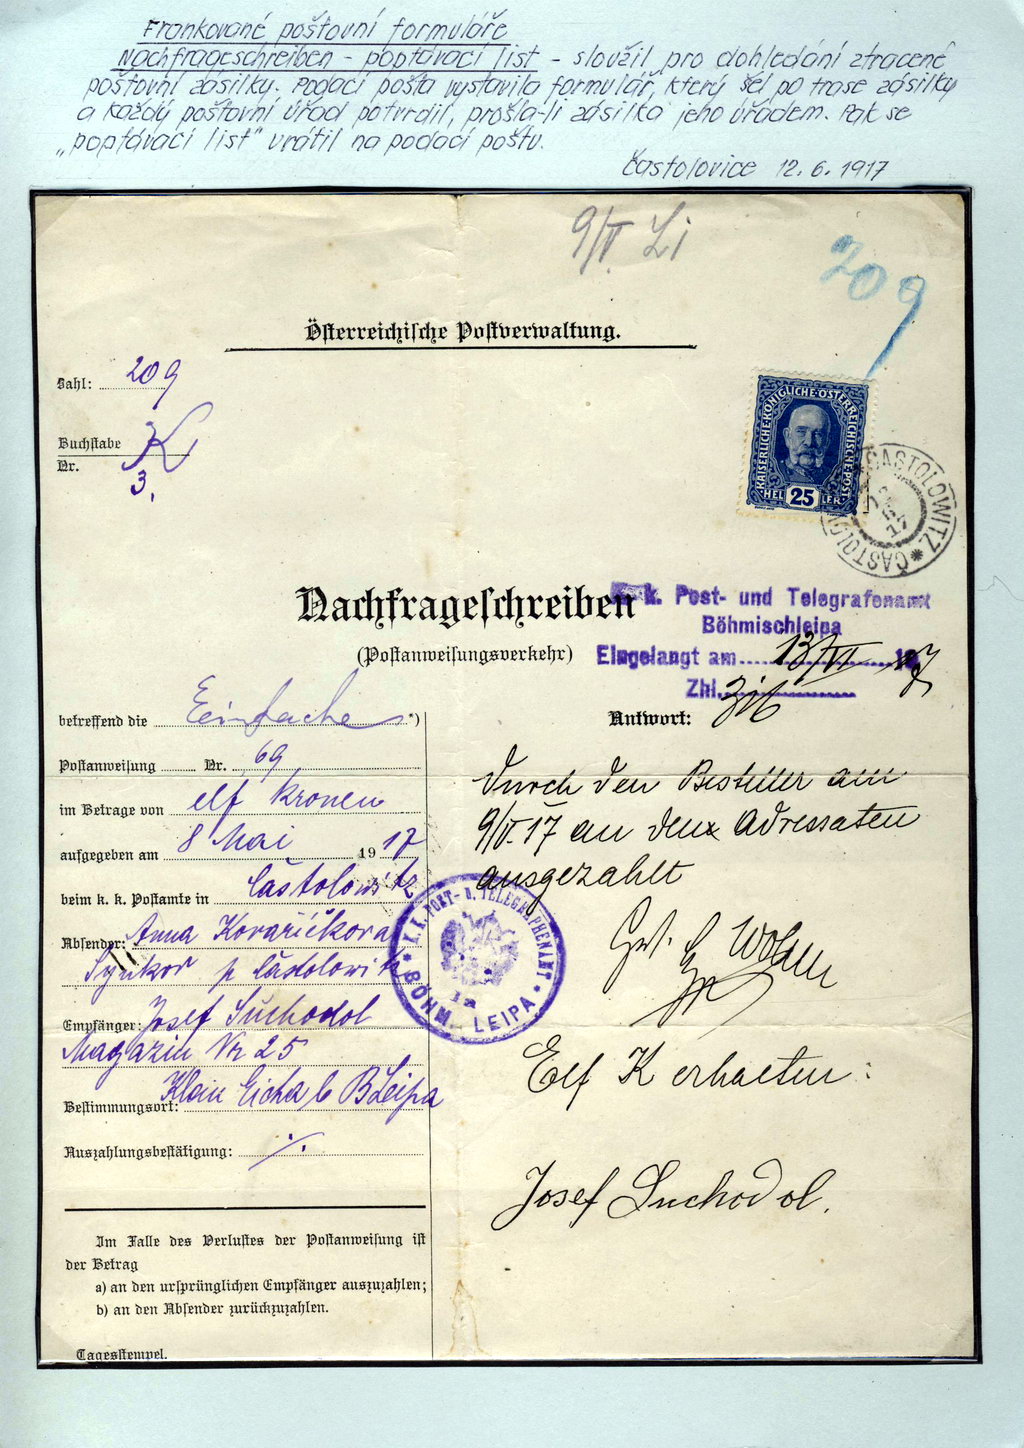 Frankované poštovní formuláře
Nachfrageschreiben - poptávací list - sloužil pro dohledání ztracené
poštovní zásilky. Podací pošta vystavila formulář, který šel po trase zásilky
a každý poštovní úřad potvrdil, prošla-li zásilka jeho úřadem. Pak se
„poptávací list" vrátil na podací poštu.
Častolovice 12. 6. 1917
9/V. Li
209
Österreichische Postverwaltung.
Zahl: 209
Buchstabe K
Nr. 3.
KAISERLICHE KÖNIGLICHE ÖSTERREICHISCHE POST
HELLER 25
CASTOLOWITZ * ČASTOLO
17
Nachfrageschreiben
(Postanweisungsverkehr)
k. Post- und Telegrafenamt
Böhmischleipa
Eingelangt am 13/VI 17
Zhl.
betreffend die Einfache *)
Postanweisung Nr. 69
im Betrage von elf Kronen
aufgegeben am 8 Mai 1917
beim k. k. Postamte in Častolowitz
Absender: Anna Kovaříčkova
p Častolowitz
Empfänger: Josef Suchodol
Magazin Nr 25
Bestimmungsort: Klein Eicha b BLeipa
Auszahlungsbestätigung: ·/.
Im Falle des Verlustes der Postanweisung ist
der Betrag
a) an den ursprünglichen Empfänger auszuzahlen;
b) an den Absender zurückzuzahlen.
Tagesstempel.
Antwort:
durch den Besteller am
9/V. 17 an den Adressaten
ausgezahlt
K. K. POST- U. TELEGRAPHENAMT
* BÖHM. LEIPA *
Elf K erhalten:
Josef Suchodol.